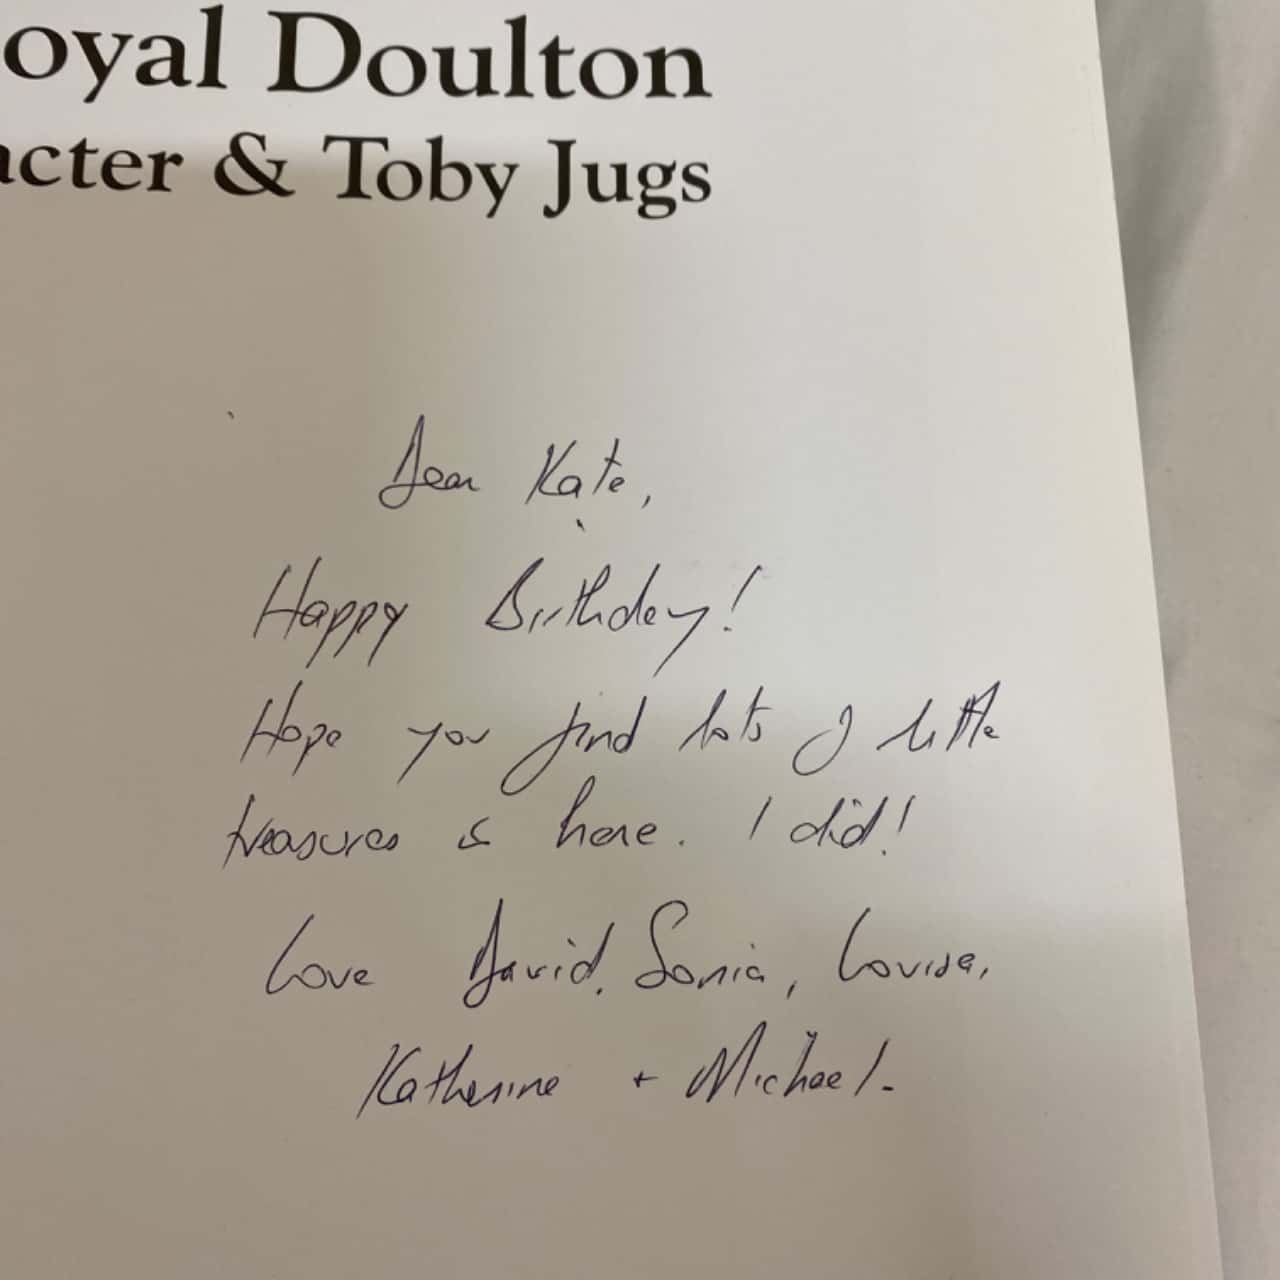 oyal Doulton
acter & Toby Jugs
Dear Kate,
Happy Birthday!
Hope you find lots of little
treasures is here. I did!
Love David, Sonia, Louisa,
Katherine + Michael.